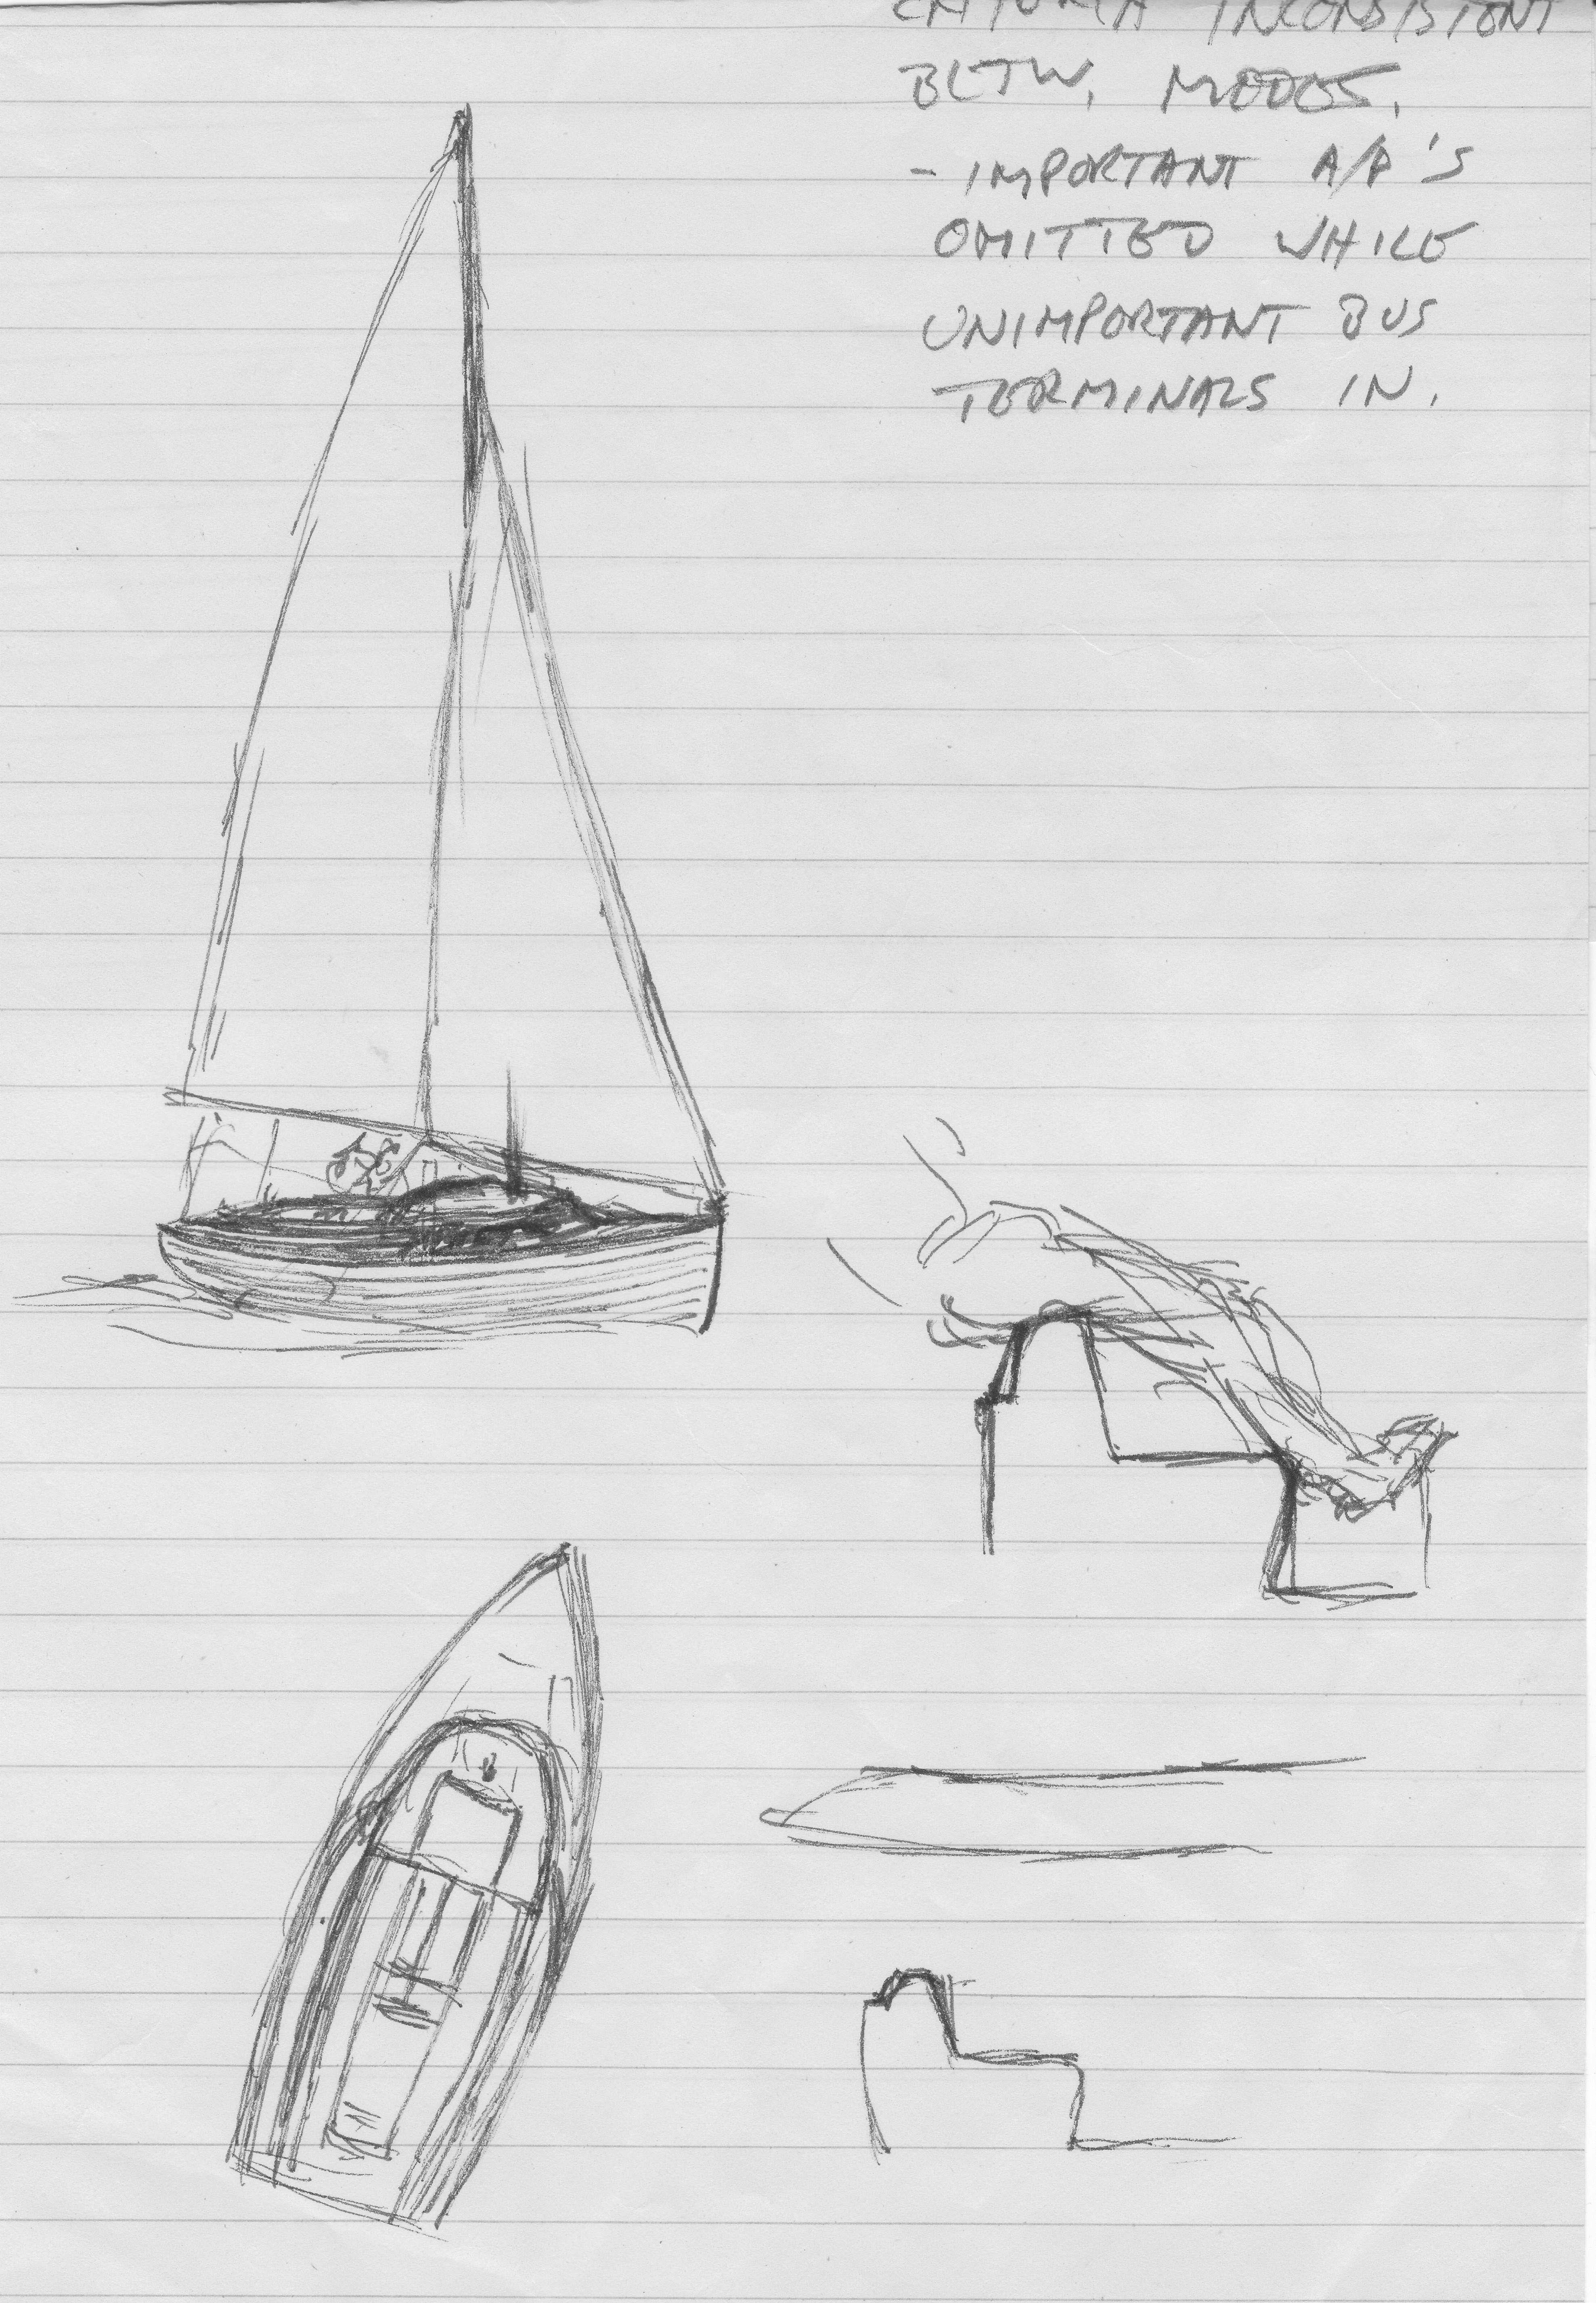 INCONSISTENT
BETW. MODES.
- IMPORTANT A/P'S
OMITTED WHILE
UNIMPORTANT BUS
TERMINALS IN.